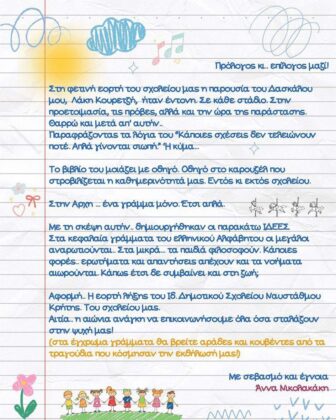 Πρόλογος κι.. επίλογος μαζί!
Στη φετινή εορτή του σχολείου μας η παρουσία του Δασκάλου
μου, Λάκη Κουρετζή, ήταν έντονη. Σε κάθε στάδιο. Στην
προετοιμασία, τις πρόβες, αλλά και την ώρα της παράστασης.
Θαρρώ και μετά απ' αυτήν..
Παραφράζοντας τα λόγια του "Κάποιες σχέσεις δεν τελειώνουν
ποτέ. Απλά γίνονται σιωπή." Ή κύμα...
Το βιβλίο του μοιάζει με οδηγό. Οδηγό στο καρουζέλ που
στροβιλίζεται η καθημερινότητά μας. Εντός κι εκτός σχολείου.
Στην Αρχή ... ένα γράμμα μόνο. Έτσι απλά.
Με τη σκέψη αυτήν.. δημιουργήθηκαν οι παρακάτω ΙΔΕΕΣ.
Στα κεφαλαία γράμματα του ελληνικού Αλφάβητου οι μεγάλοι
αναρωτιούνται.. Στα μικρά... τα παιδιά φιλοσοφούν. Κάποιες
φορές.. ερωτήματα και απαντήσεις απέχουν και τα νοήματα
αιωρούνται. Κάπως έτσι δε συμβαίνει και στη ζωή;
Αφορμή.. Η εορτή λήξης του 1ου Δημοτικού Σχολείου Ναυστάθμου
Κρήτης. Του σχολείου μας.
Αιτία.. η αιώνια ανάγκη να επικοινωνήσουμε όλα όσα σταλάζουν
στην ψυχή μας!
(στα έγχρωμα γράμματα θα βρείτε αράδες και κουβέντες από τα
τραγούδια που κόσμησαν την εκδήλωσή μας!)
Με σεβασμό και έγνοια
Άννα Νικολακάκη